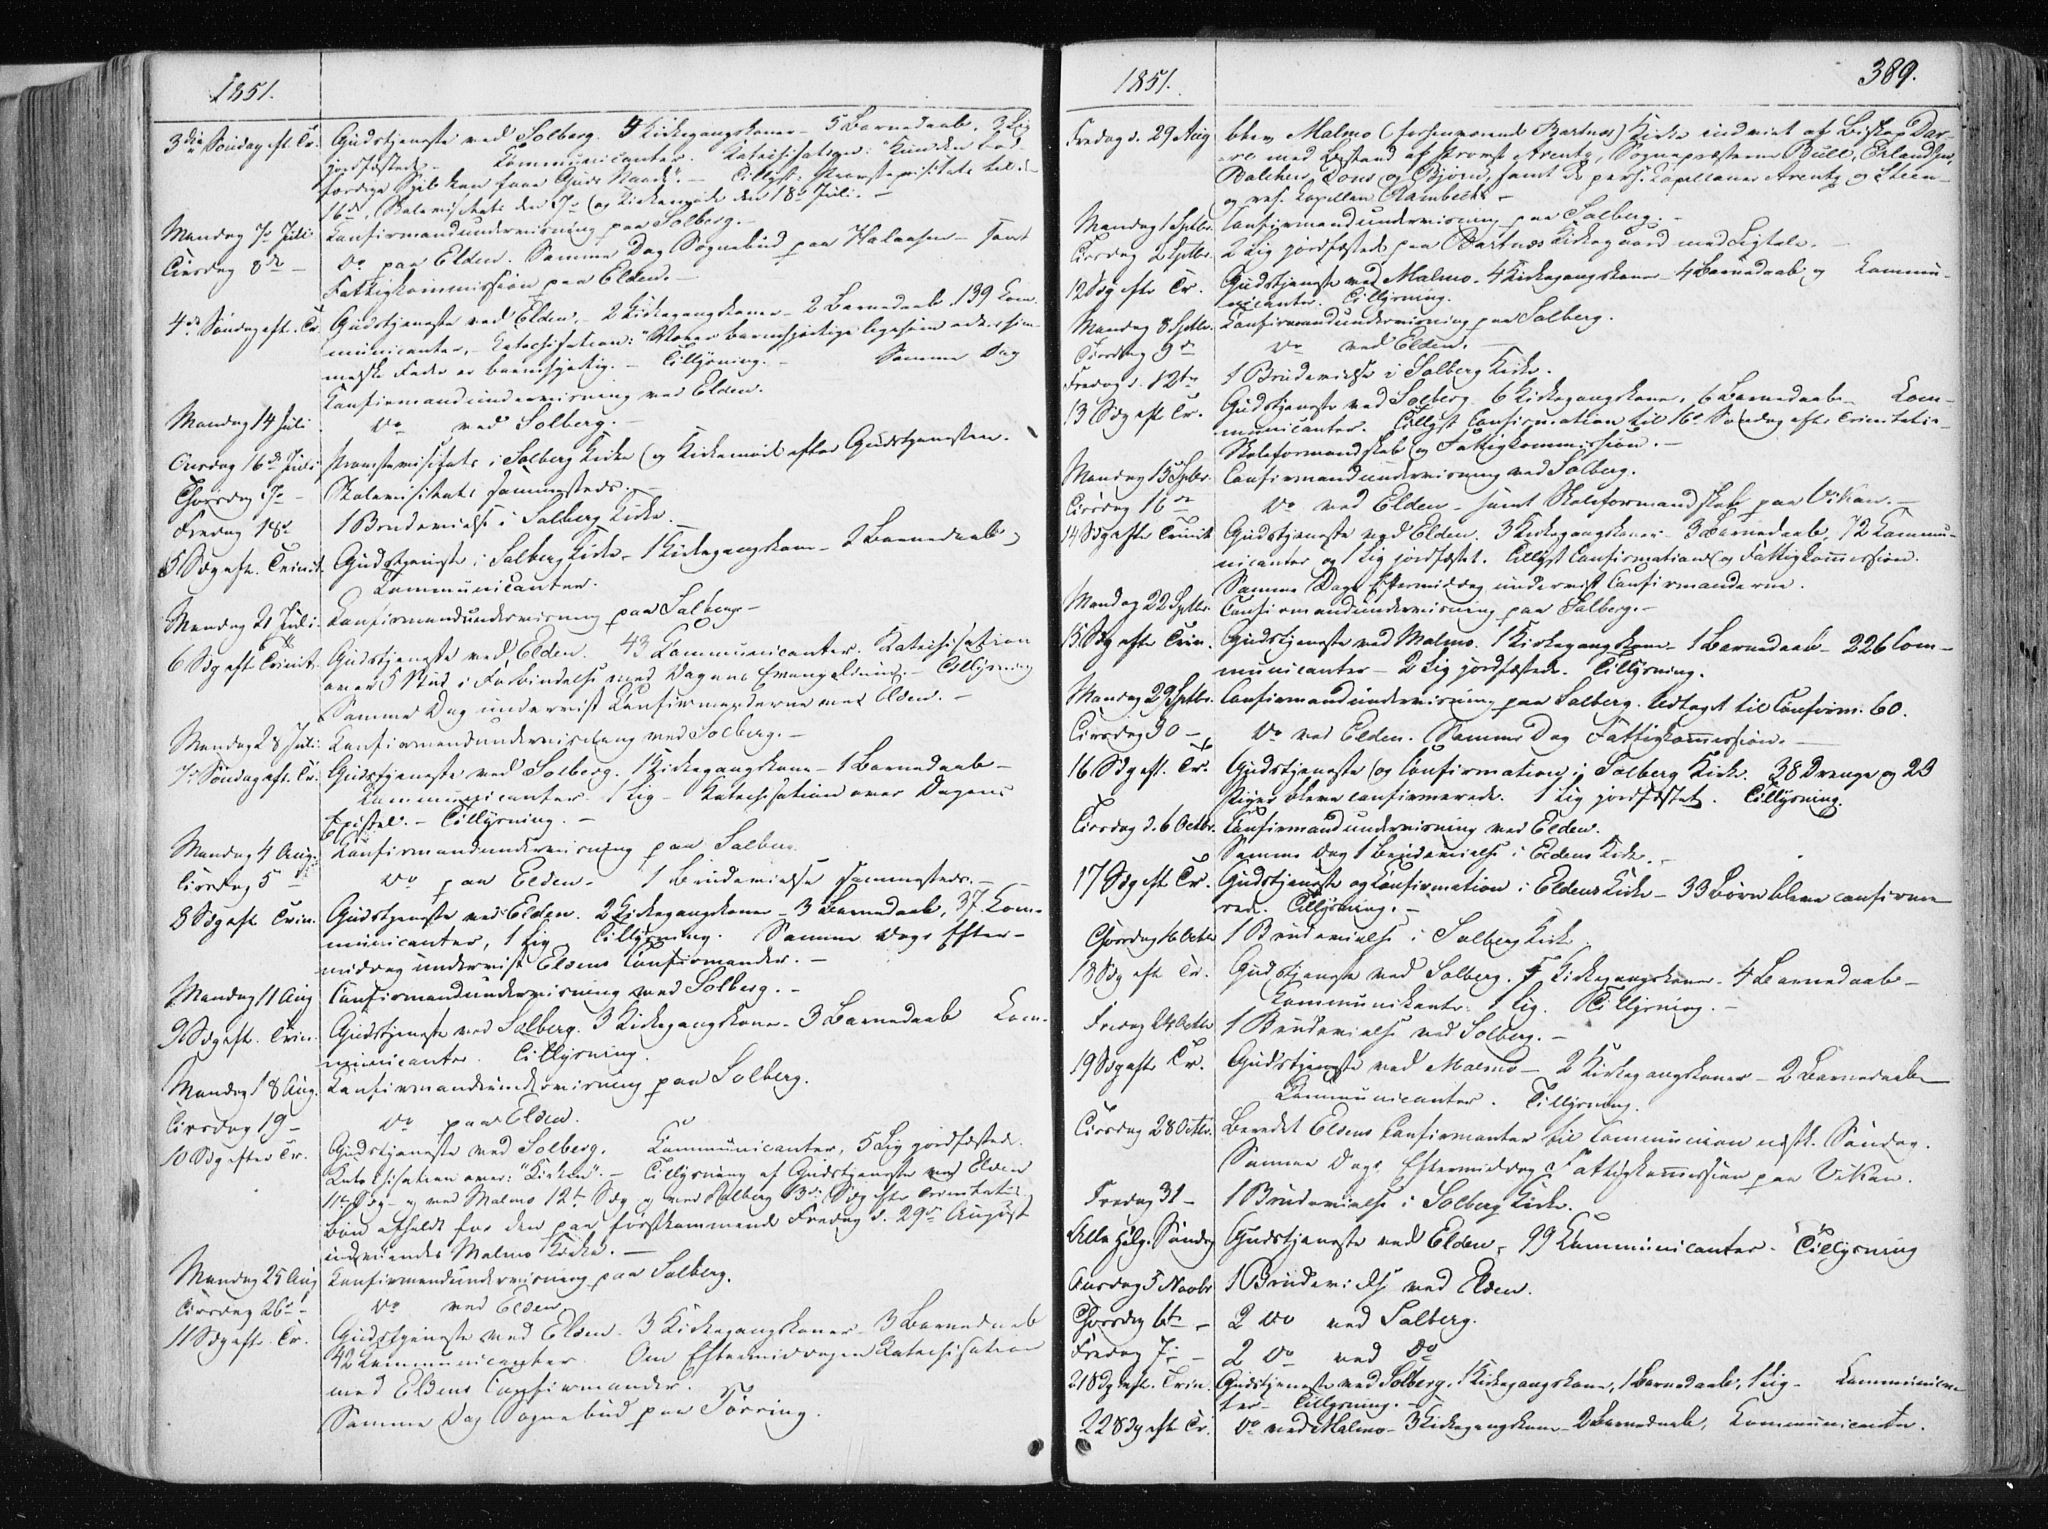 1851.
3die Søndag eft. Tr. Gudstjeneste ved Solberg. 4 Kirkegangskoner - 5 Barnedaab, 3 Lig
jordfæstede. Kommunicanter. Katechisation: "Kun den bod-
færdige Sjel kan faae Guds Naade". - Tillyst: Provstevisitats til
16de, Skolevisitats den 17de og Kirkemøde den 18de Juli. -
Mandag 7de Juli Konfirmandundervisning paa Solberg. -
Tirsdag 8de - Do paa Elden. Samme Dag Sognebud paa - samt
Fattigkommission paa Elden. -
4de Søndag eft. Tr. Gudstjeneste ved Elden. - 2 Kirkegangskoner - 2 Barnedaab. 139 Kom-
municanter. - Katechisation: "Værer barmhjertige ligesom eders him-
melske Fader er barmhjertig. - Tillysning. - Samme Dag
Konfirmandundervisning ved Elden.
Mandag 14 Juli Do ved Solberg. -
Onsdag 16de Juli Provstevisitats i Solberg Kirke og Kirkemøde efter Gudstjenesten.
Thorsdag 17de - Skolevisitats sammesteds. -
Fredag 18de 1 Brudevielse i Solberg Kirke. -
5 Sdg eft. Trinit. Gudstjeneste i Solberg Kirke - 1 Kirkegangskone - 2 Barnedaab,
Kommunicanter.
Mandag 21 Juli Konfirmandundervisning paa Solberg -
6 Sdg eft Trinit. Gudstjeneste ved Elden. 43 Kommunicanter. Katechisation
over 5 Bud i Forbindelse med Dagens Evangelium - Tillysning
Samme Dag undervist Konfirmanderne ved Elden. -
Mandag 28 Juli. Konfirmandundervisning ved Solberg. -
7de Søndag eft. Tr. Gudstjeneste ved Solberg. 1 Kirkegangskone - 1 Barnedaab -
Kommunicanter. 1 Lig - Katechisation over Dagens
Epistel. - Tillysning. -
Mandag 4 Aug. Konfirmandundervisning paa Solberg
Tirsdag 5 - Do paa Elden. 1 Brudevielse sammesteds. -
8 Sdg eft. Trin. Gudstjeneste ved Elden. 2 Kirkegangskoner - 3 Barnedaab, 37 Kom-
municanter, 1 Lig Tillysning. Samme Dags Efter-
middag undervist Eldens Confirmander. -
Mandag 11 Aug Confirmandundervisning ved Solberg. -
9 Sdg eft. Trin. Gudstjeneste ved Solberg. 3 Kirkegangskoner - 3 Barnedaab Kom-
municanter. Tillysning.
Mandag 18 Aug. Konfirmandundervisning paa Solberg.
Tirsdag 19 - Do paa Elden.
10 Sdg efter Tr. Gudstjeneste ved Solberg. Kommunicanter, 5 Lig jordfæstede.
Katechisation over: "Kirken". - Tillysning af Gudstjeneste ved Elden
11te Sdg - og ved Malmo 12te Sdg og ved Solberg 13de Sdg efter Trinitatis,
Bøn afholdt for den paa førstkommende Fredag d. 29de August
indviendes Malmo Kirke. -
Mandag 25 Aug Konfirmandundervisning paa Solberg.
Tirsdag 26de - Do ved Elden
11 Sdg eft. Tr. Gudstjeneste ved Elden - 3 Kirkegangskoner - 3 Barnedaab
42 Kommunicanter. Om Eftermiddagen Katechisation
med Eldens Confirmander.
Samme Dag Sognebud paa Tørring.
1851. 389.
Fredag d. 29 Aug blev Malmo (forhenværende Bartnes) Kirke indviet af Biskop Dar-
re med Bistand af Provst Arentz, Sognepræsterne Bull, Erlandsen,
Balchen, Dons og Bjørn, samt de pers. Kapellaner Arentz og Steen-
og res. Kapellan Rambech -
Mandag 1 Septbr. Confirmandundervisning paa Solberg. -
Tirsdag 2 Septbr. 2 Lig jordfæstede paa Bartnes Kirkegaard med Ligtale. -
12 Sdg efter Tr. Gudstjeneste ved Malmo. 4 Kirkegangskoner - 4 Barnedaab og Kommu-
nicanter. Tillysning.
Mandag 8 Septbr. Confirmandundervisning paa Solberg.
Tirsdag 9de Do ved Elden. -
Fredag d. 12te 1 Brudevielse i Solberg Kirke.
13 Sdg eft Tr. Gudstjeneste ved Solberg. 6 Kirkegangskoner, 6 Barnedaab - Kom-
municanter. Tillyst Confirmation til 16de Søndag eft. Trinitatis -
Skoleformandskab og Fattigkommission. -
Mandag 15 Septbr. Confirmandundervisning ved Solberg.
Tirsdag 16de Do ved Elden - samt Skoleformandskab paa Vikan. -
14 Sdg efter Trinit Gudstjeneste ved Elden. 3 Kirkegangskoner - 3 Barnedaab, 72 Kommu-
nicanter og 1 Lig jordfæstet. Tillyst Confirmation og Fattigkommission.
Samme Dags Eftermiddag undervist Confirmanderne.
Mandag 22 Septbr. Confirmandundervisning paa Solberg. -
15 Sdg efter Trin. Gudstjeneste ved Malmo. 1 Kirkegangskone - 1 Barnedaab - 226 Com-
municanter - 2 Lig jordfæstede. Tillysning.
Mandag 29 Septbr. Confirmandundervisning paa Solberg. Udtaget til Confirm. 60.
Tirsdag 30 - Do ved Elden. Samme Dag Fattigkommission. -
16 Sdg eft. Tr. Gudstjeneste og Confirmation i Solberg Kirke. 38 Drenge og 23
Piger bleve confirmerede. 1 Lig jordfæstet. Tillysning.
Tirsdag d. 6 Octbr. Confirmandundervisning ved Elden.
Samme Dag 1 Brudevielse i Eldens Kirke. -
17 Sdg eft Tr. Gudstjeneste og Confirmation i Eldens Kirke - 33 Børn bleve confirme-
rede. Tillysning. -
Thorsdag 16 Octbr 1 Brudevielse i Solberg Kirke
18 Sdg eft Tr. Gudstjeneste ved Solberg. 5 Kirkegangskoner - 4 Barnedaab -
Kommunikanter. Lig. Tillysning. -
Fredag 24 Octbr 1 Brudevielse ved Solberg. -
19 Sdg eft. Tr. Gudstjeneste ved Malmo - 2 Kirkegangskoner - 2 Barnedaab -
Kommunicanter. Tillysning.
Tirsdag 28 Octbr. Beredet Eldens Confirmanter til Communion næst. Søndag.
Samme Dags Eftermiddag Fattigkommission paa Vikan.
Fredag 31 - 1 Brudevielse i Solberg Kirke.
Alle Helg. Søndag Gudstjeneste ved Elden, 99 Kommunicanter. Tillysning
Onsdag 5 Novbr 1 Brudevielse ved Elden.
Thorsdag 6te - 2 Do ved Solberg.
Fredag 7de - 2 Do ved Do
21 Sdg eft. Trin. Gudstjeneste ved Solberg. 1 Kirkegangskone, 1 Barnedaab, 1 Lig - Kommunican-
ter - Tillysning. -
22 Sdg eft Tr. Do ved Malmo - 3 Kirkegangskoner - 2 Barnedaab, Kommunicanter.